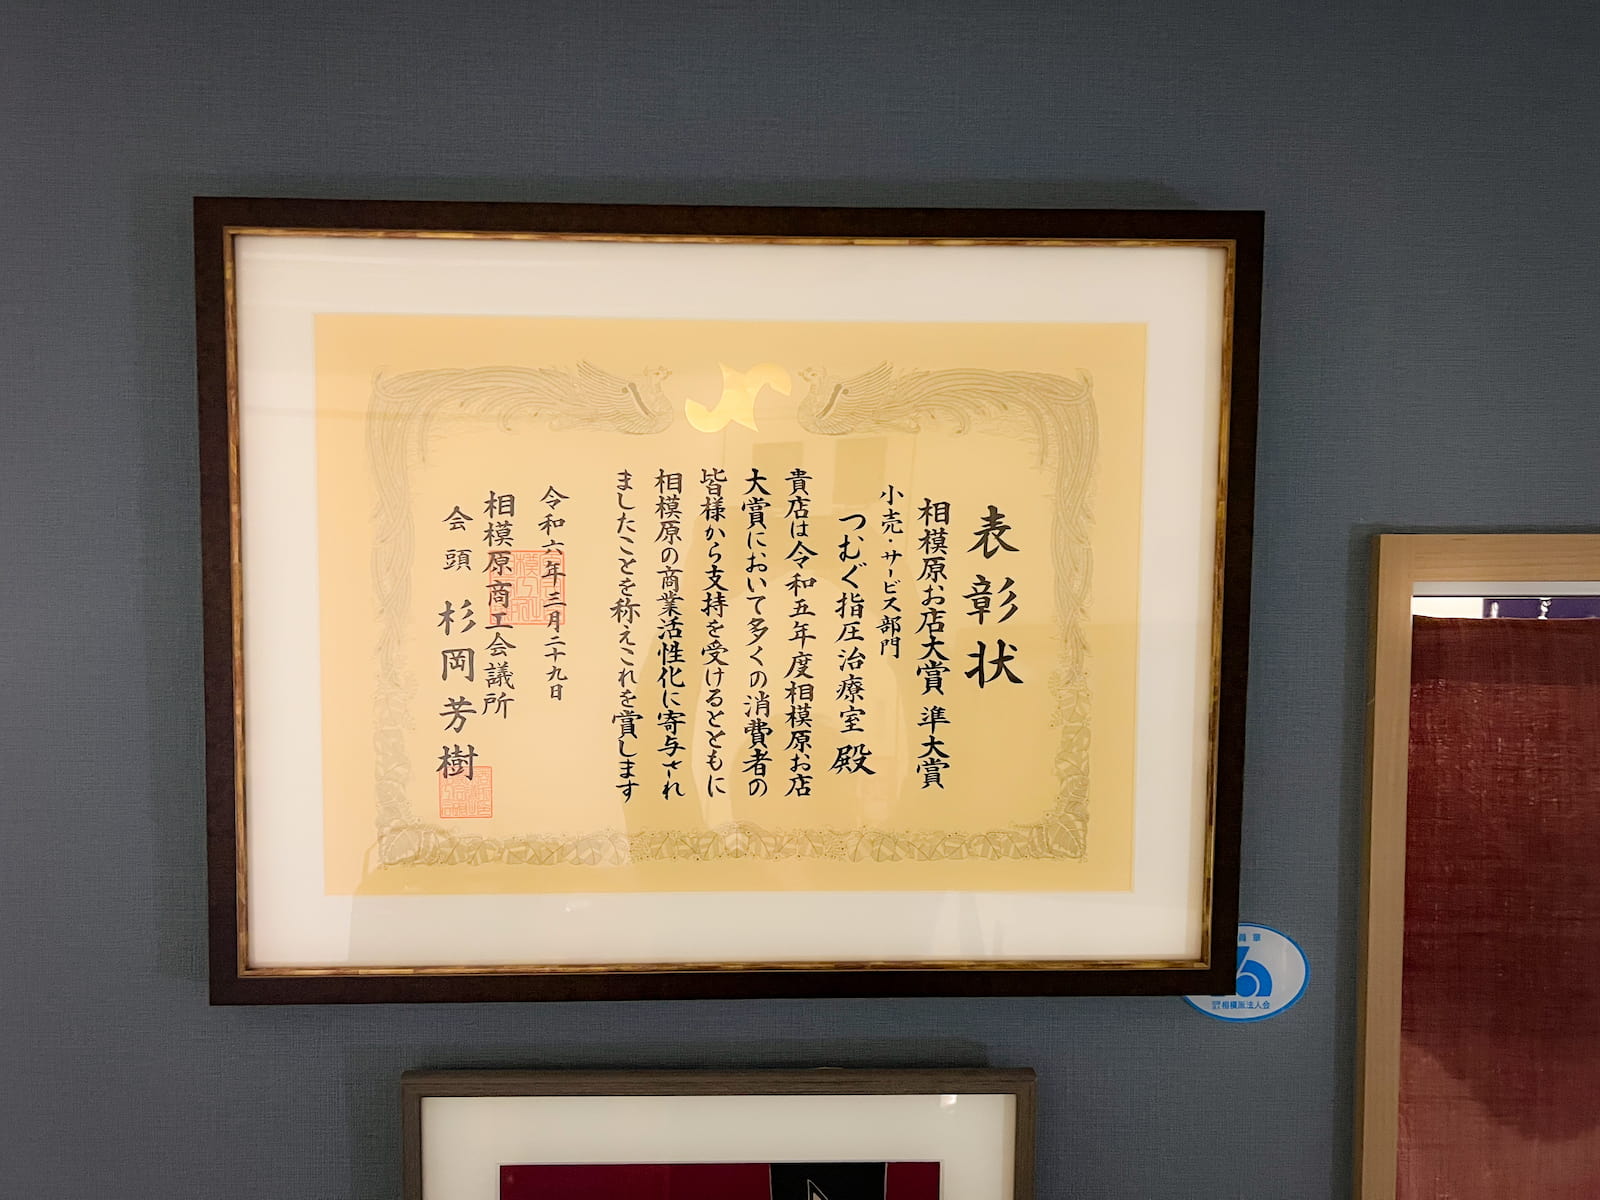 表彰状
相模原お店大賞 準大賞
小売・サービス部門
つむぐ指圧治療室 殿
貴店は令和五年度相模原お店
大賞において多くの消費者の
皆様から支持を受けるとともに
相模原の商業活性化に寄与され
ましたことを称えこれを賞します
令和六年三月二十九日
相模原商工会議所
会頭 杉岡芳樹
員章
相模原法人会